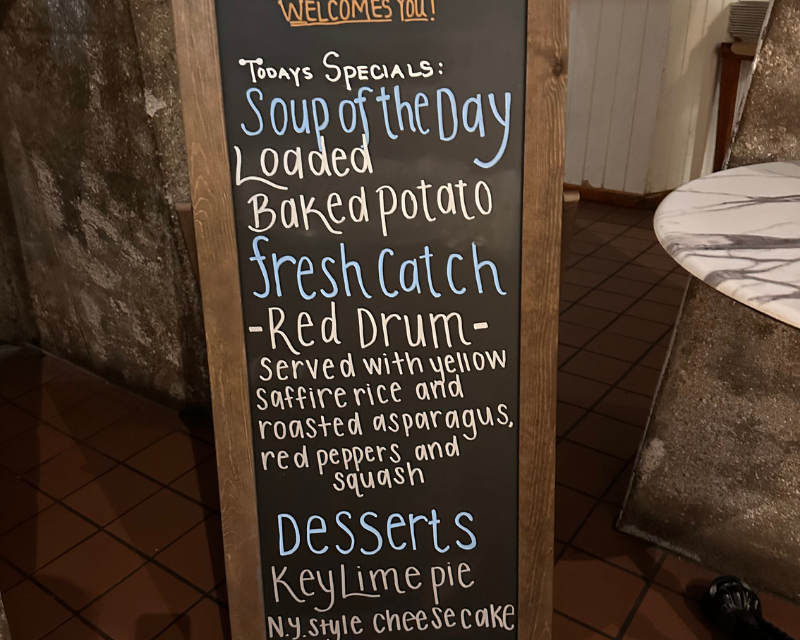 WELCOMES YOU!
TODAYS SPECIALS:
Soup of the Day
Loaded
Baked potato
fresh Catch
-Red Drum-
served with yellow
saffire rice and
roasted asparagus,
red peppers and
squash
Desserts
Key Lime pie
N.Y. style cheese cake